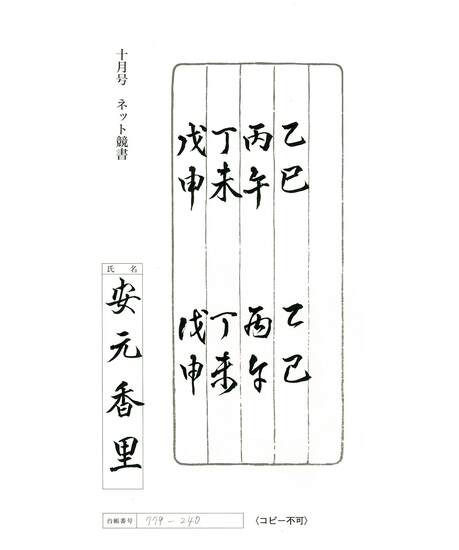 十月号 ネット競書
乙巳 乙巳
丙午 丙午
丁未 丁未
戊申 戊申
氏名
安元香里
台帳番号 779-240
〈コピー不可〉